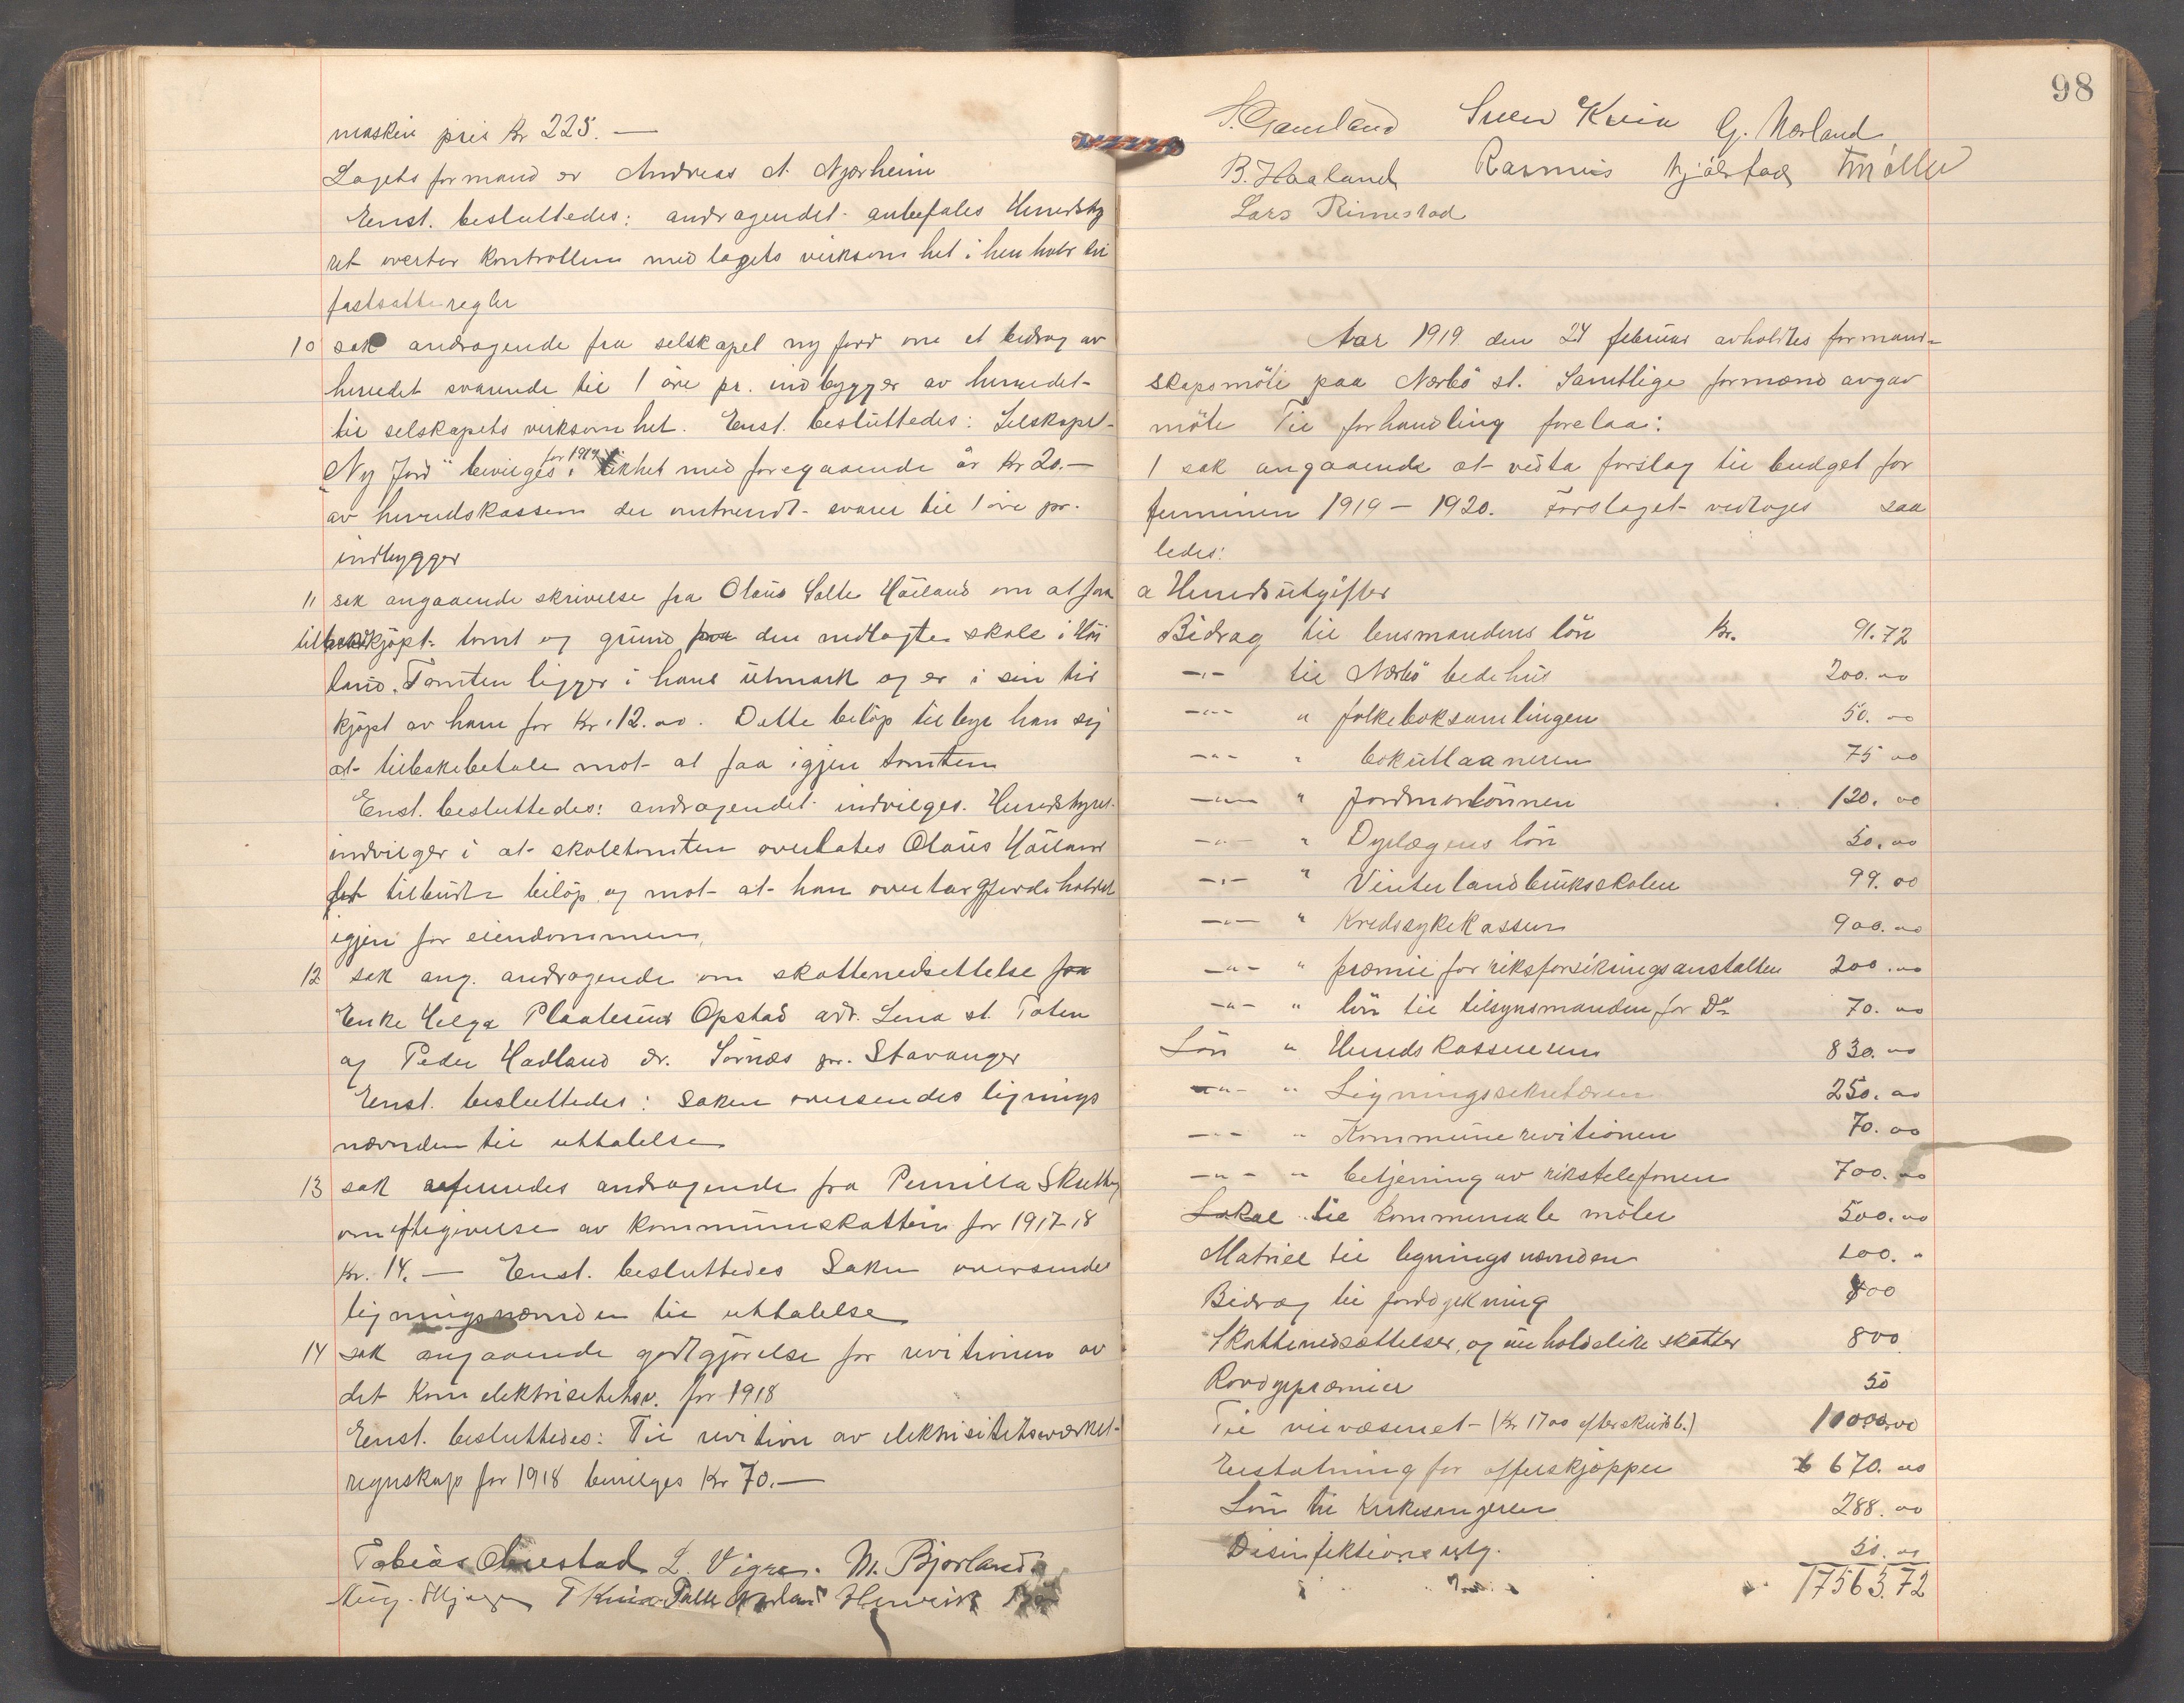 maskin pris kr 225.—
Lagets formand er Andreas A. Njærheim
Enst. besluttedes: andragendet anbefales Herredsty
ret overtar kontrollen med lagets virksomhet i henhold til
fastsatte regler
10 sak andragende fra selskapet ny jord om et bidrag av
herredet svarende til 1 øre pr. indbygger av herredet
til selskapets virksomhet. Enst. besluttedes: Selskapet
for 1919
"Ny Jord" bevilges i likhet med foregaaende år kr 20.—
av herredskassen der omtrendt svarer til 1 øre pr.
indbygger
11 sak angaaende skrivelse fra Olaus Salte Håiland om at faa
tilbakekjøpt tomt og grund den nedlagte skole i Håi
land. Tomten ligger i hans utmark og er i sin tid
kjøpt av ham for kr. 12.00. Dette beløp tilbyr han sig
at tilbakebetale mot at faa igjen tomten
Enst. besluttedes: andragendet indvilges. Herredstyret
indvilger i at skoletomten overlates Olaus Håiland
det tilbudte beløp og mot at han overtar gjerdeholdet
igjen for eiendommen,
12 sak ang. andragende om skattenedsettelse fra
Enke Helga Opstad adr. Lena st. Toten
og Peder Hadland adr. Sørnæs pr. Stavanger
Enst. besluttedes: Saken oversendes lignings
nævnden til uttalelse
13 sak refereredes andragende fra Pernilla
om eftergivelse av kommuneskatten for 1917-18
kr. 14.— Enst. besluttedes Saken oversendes
ligningsnævnden til uttalelse
14 sak angaaende godtgjørelse for revitionen av
det kom elektrisitetsv. for 1918
Enst. besluttedes: Til revition av elektrisitetsverket
regnskap for 1918 bevilges kr 70.—
Tobias Obrestad L. Vigre. M. Bjorland
T Kvia Palle Nærland Henrik
98
S. Gamland Sven Kvia G. Nærland
B. Haaland Rasmus Njølstad
Lars Rimestad
Aar 1919 den 24 februar avholdtes formand-
skapsmöte paa Nærbö st. Samtlige formænd avgav
möte Til forhandling forelaa:
1 sak angaaende at vedta forslag til budget for
terminen 1919 – 1920. Forslaget vedtoges saa
ledes:
a Herredsutgifter
Bidrag til lensmandens lön kr. 91.72
—"— til Nærbö bedehus 200.00
—"— " folkeboksamlingen 50.00
—"— " bokutlaaneren 75 00
—"— " Jordmorlönnen 120.00
—"— " Dyrlægens lön 50.00
—"— " Vinterlandbruksskolen 99.00
—"— " Kredssykekassen 900.00
—"— " præmie for riksforsikringsanstalten 200.00
—"— " lön til tilsynsmanden for Do 70.00
Lön " Herredskassereren 830.00
—"— " Ligningssekretæren 250.00
—"— " Kommunerevitionen 70.00
—"— " betjening av rikstelefonen 700.00
Lokal til kommunale möter 500.00
Matriel til ligningsnævnden 100. "
Bidrag til jorddyrkning 400
Skattenedsættelser, og uerholdelike skatter 800
Rovdyrpræmier 50
Til veivæsenet (kr 1700 efterskudsb.) 11000.00
Erstatning for offerskjæpper 670.00
Lön til kirkesangeren 288.00
Disinfektionsutg. 50.00
17563.72